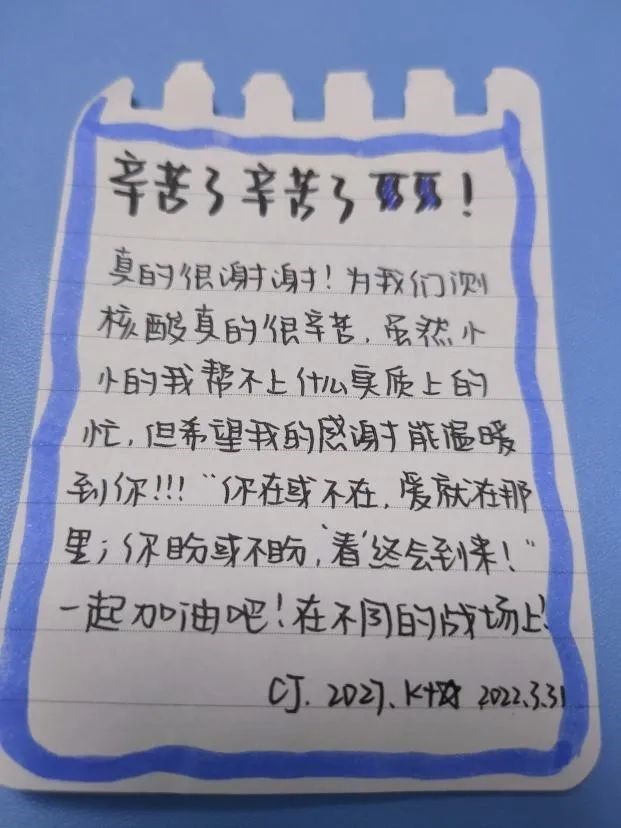 辛苦了辛苦了!
真的很谢谢!为我们测
核酸真的很辛苦,虽然小
小的我帮不上什么实质上的
忙,但希望我的感谢能温暖
到你!!!“你在或不在,爱就在那
里;你盼或不盼,‘春’终会到来!”
一起加油吧!在不同的战场上!
CJ. 2027. 2022.3.31